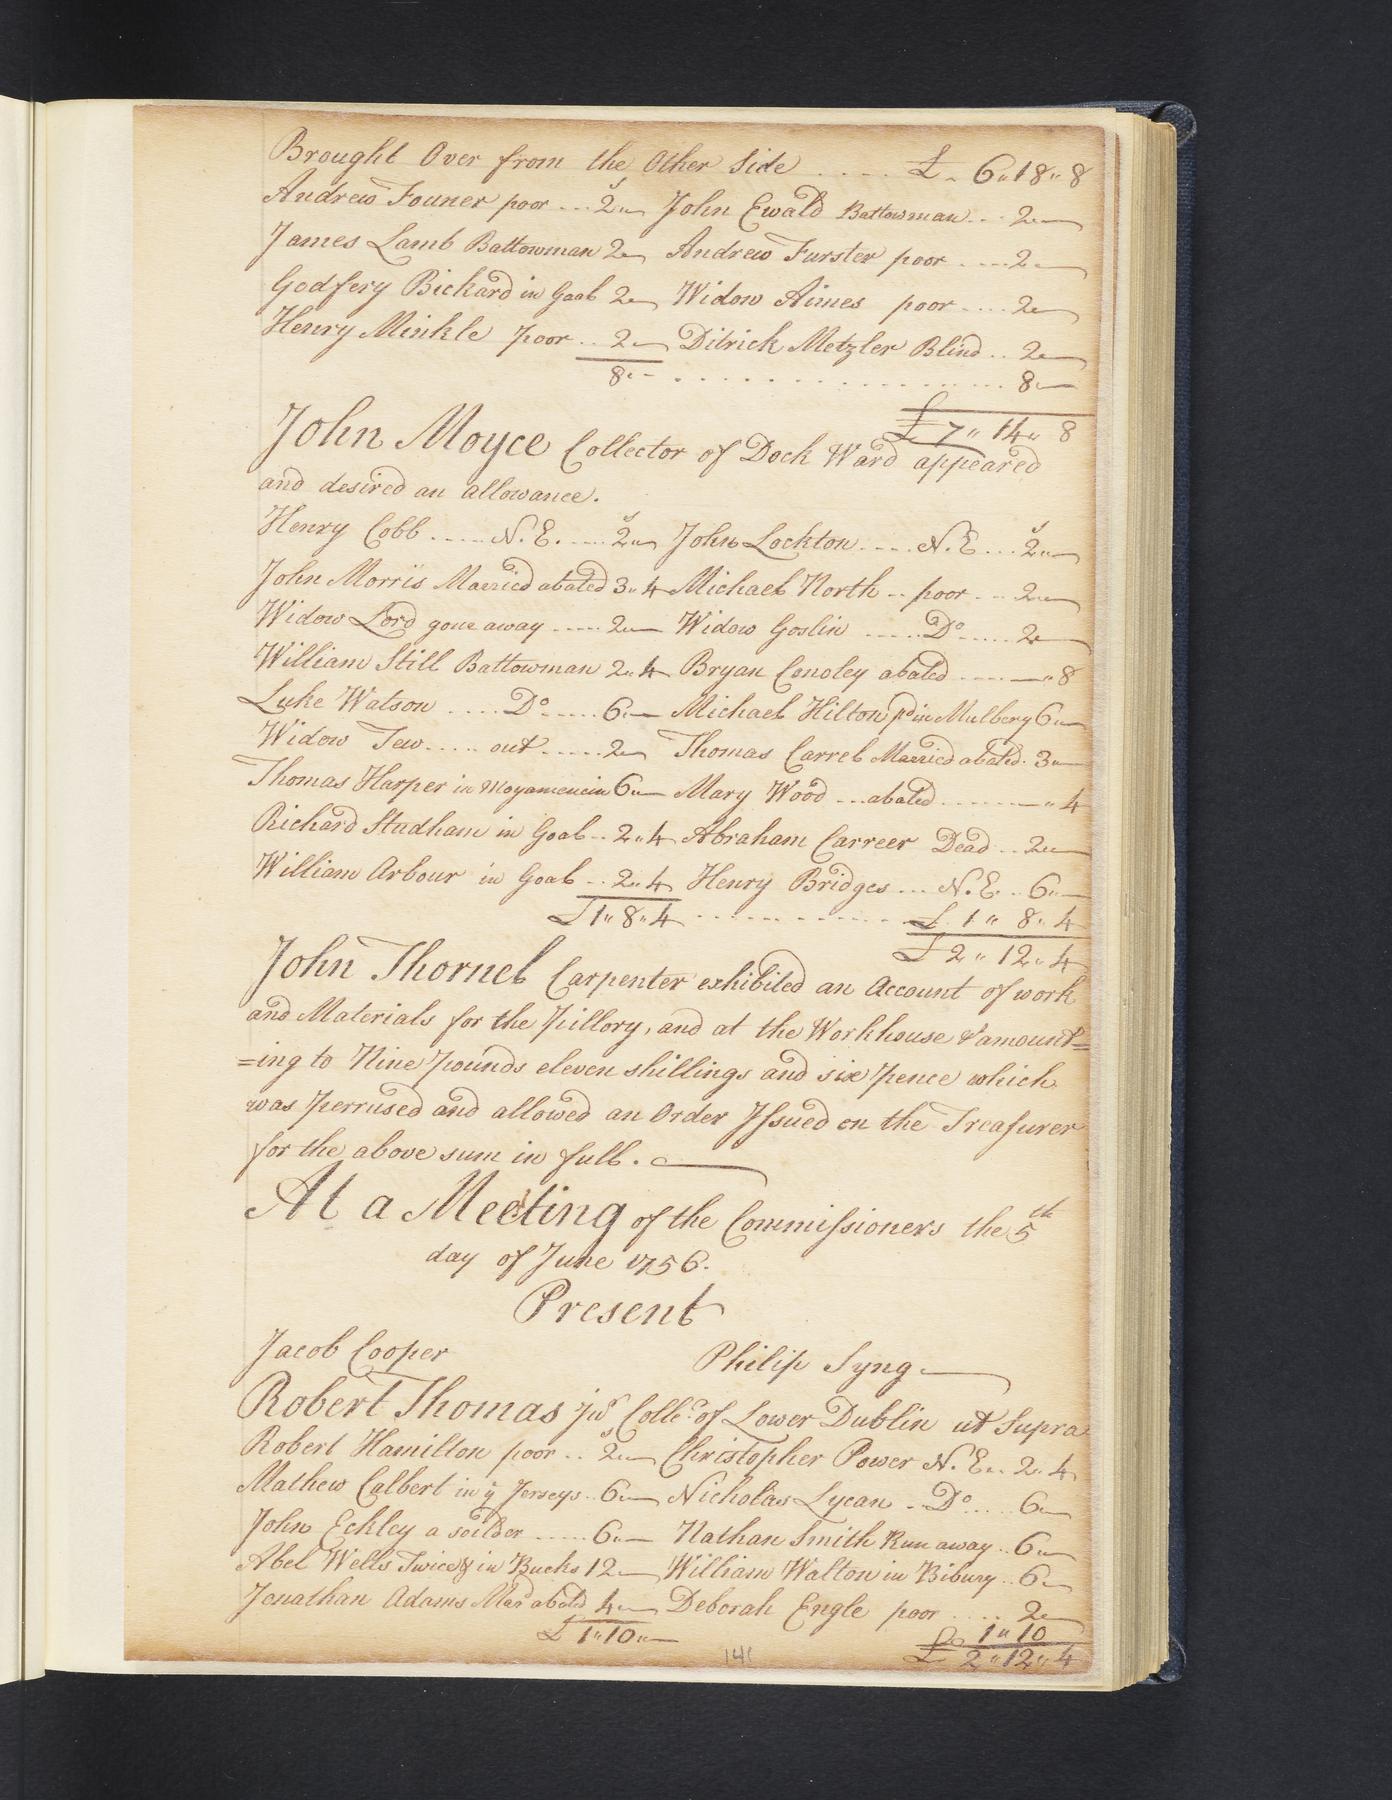 Brought Over from the Other Side ..... £ - 6"18"8
Andrew Founer poor ... 2"— John Ewald Battowman ... 2"—
James Lamb Battowman 2"— Andrew Furster poor .... 2"—
Godfery Bickard in Goal 2"— Widow Aimes poor .... 2"—
Henry Minkle poor .. 2"— Ditrick Metzler Blind .. 2"—
8"- ................ 8"—
£ 7" 14" 8
John Moyce Collector of Dock Ward appeared
and desired an allowance.
Henry Cobb ..... N.E. .... 2"— John Lockton .... N.E ... 2"—
John Morris Married abated 3"4 Michael North .. poor ... 2"—
Widow Lord gone away ..... 2"— Widow Goslin ..... Do ..... 2"—
William Still Battowman 2"4 Bryan Conoley abated ....—"8
Luke Watson .... Do ..... 6"— Michael Hilton pd in Mulbery 6"—
Widow Tew ..... out ..... 2"— Thomas Carrel Married abated. 3"—
Thomas Harper in Moyamencin 6"— Mary Wood ... abated ........—"4
Richard Studham in Goal .. 2"4 Abraham Carreer Dead .. 2"—
William Arbour in Goal .. 2"4 Henry Bridges ... N.E. .. 6"—
£ 1"8"4 ............ £ 1"8"4
£ 2"12"4
John Thornel Carpenter exhibited an Account of work
and Materials for the Pillory, and at the Workhouse & amount=
=ing to Nine Pounds eleven shillings and six Pence which
was Perrused and allowed an Order Issued on the Treasurer
for the above sum in full.
At a Meeting of the Commissioners the 5th
day of June 1756.
Present
Jacob Cooper Philip Syng
Robert Thomas Junr Collecr of Lower Dublin ut Supra
Robert Hamilton poor .. 2"— Christopher Power N.E.. 2"4
Mathew Calbert in ye Jerseys .. 6"— Nicholas Lycan - Do .... 6"—
John Eckley a soilder ..... 6"— Nathan Smith Run away .. 6"—
Abel Wells Twice & in Bucks 12"— William Walton in Bibury .. 6"—
Jonathan Adams Mard abated 4"— Deborah Engle poor .... 2"—
£ 1"10"— £ 1"10
£ 2"12"4
141